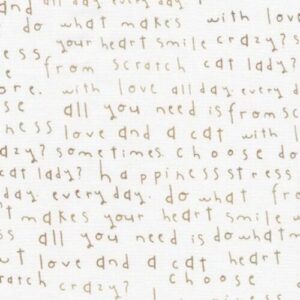 and all day every day.
do what makes with love
your heart smile crazy? s
e from scratch cat lady?
ore. with love all day. every da
se all you need is from sc
ness love and a cat with l
azy? sometimes. choose do
cat lady? happiness stress
day. every day. do what from
t makes your heart smile w
s all you need is do what m
ut love and a cat heart
ratch crazy? choose